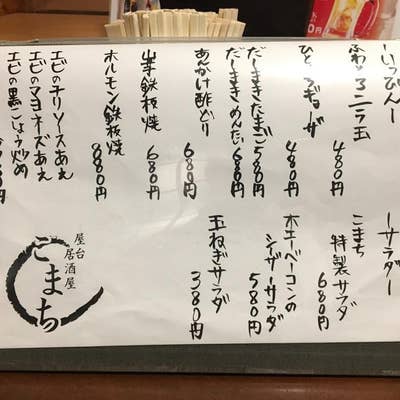 ーいっぴんー
ふわとろニラ玉
480円
ひとくちギョーザ
480円
だしまきたまご 580円
だしまきめんたい 680円
あんかけ酢どり
680円
山芋鉄板焼
680円
ホルモン鉄板焼
880円
エビのチリソースあえ
エビのマヨネーズあえ
エビの黒こしょう炒め
ーサラダー
こまち
特製サラダ
680円
ホエーベーコンの
シーザーサラダ
580円
玉ねぎサラダ
380円
屋台
居酒屋
こまち